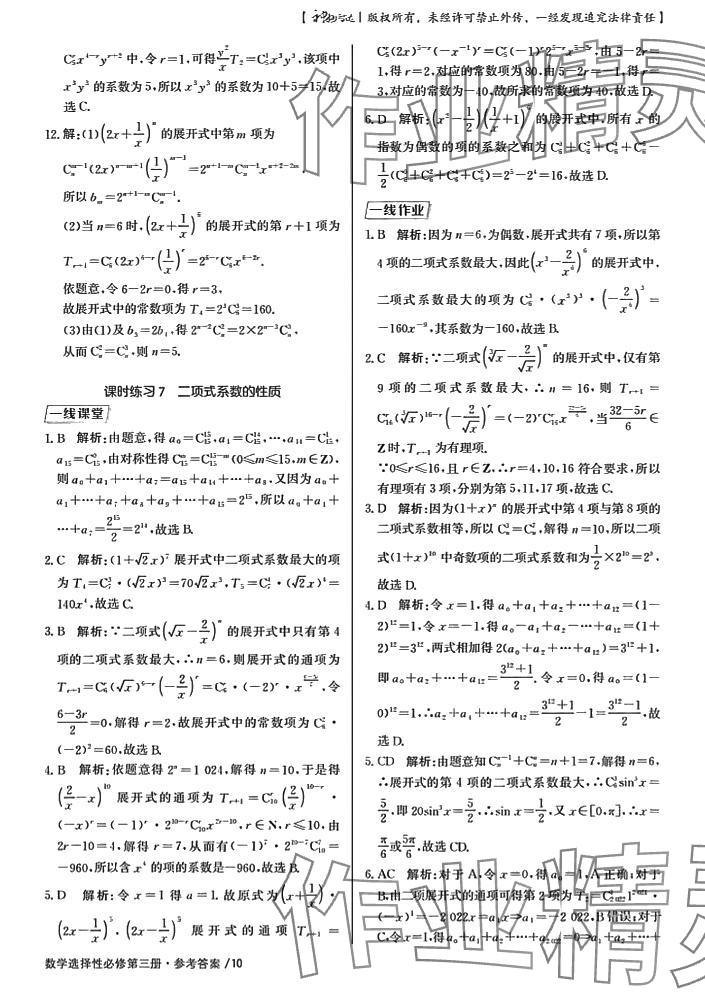 版权所有，未经许可禁止外传，一经发现追究法律责任】
C₅ʳx⁴⁻ʳyʳ⁺² 中,令 r=1,可得 y²/x T₂=C₅¹x³y³,该项中
x³y³ 的系数为 5,所以 x³y³ 的系数为 10+5=15,故
选 C.
12. 解:(1)(2x+1/x)ⁿ 的展开式中第 m 项为
Cₙᵐ⁻¹(2x)ⁿ⁻ᵐ⁺¹(1/x)ᵐ⁻¹=2ⁿ⁺¹⁻ᵐCₙᵐ⁻¹xⁿ⁺²⁻²ᵐ,
所以 bₘ=2ⁿ⁺¹⁻ᵐCₙᵐ⁻¹.
(2)当 n=6 时,(2x+1/x)⁶ 的展开式的第 r+1 项为
Tᵣ₊₁=C₆ʳ(2x)⁶⁻ʳ(1/x)ʳ=2⁶⁻ʳC₆ʳx⁶⁻²ʳ.
依题意,令 6-2r=0,得 r=3,
故展开式中的常数项为 T₄=2³C₆³=160.
(3)由(1)及 b₃=2b₄,得 2ⁿ⁻²Cₙ²=2×2ⁿ⁻³Cₙ³,
从而 Cₙ²=Cₙ³,则 n=5.
课时练习 7 二项式系数的性质
一线课堂
1. B 解析:由题意,得 a₀=C₁₅¹⁵,a₁=C₁₅¹⁴,…,a₁₄=C₁₅¹,
a₁₅=C₁₅⁰,由对称性得 C₁₅ᵐ=C₁₅¹⁵⁻ᵐ(0≤m≤15,m∈Z),
则 a₀+a₁+…+a₇=a₁₅+a₁₄+…+a₈,又因为 a₀+
a₁+…+a₇+a₈+a₉+…+a₁₅=2¹⁵,所以 a₀+a₁+
…+a₇=2¹⁵/2=2¹⁴,故选 B.
2. C 解析:(1+√2x)⁷ 展开式中二项式系数最大的项
为 T₄=C₇³·(√2x)³=70√2x³,T₅=C₇⁴·(√2x)⁴=
140x⁴,故选 C.
3. B 解析:∵二项式(√x-2/x)ⁿ 的展开式中只有第 4
项的二项式系数最大,∴n=6,则展开式的通项为
Tᵣ₊₁=C₆ʳ(√x)⁶⁻ʳ(-2/x)ʳ=C₆ʳ·(-2)ʳ·x^((6-3r)/2),令
(6-3r)/2=0,解得 r=2,故展开式中的常数项为 C₆²·
(-2)²=60,故选 B.
4. B 解析:依题意得 2ⁿ=1 024,解得 n=10,于是得
(2/x-x)¹⁰ 展开式的通项为 Tᵣ₊₁=C₁₀ʳ(2/x)¹⁰⁻ʳ·
(-x)ʳ=(-1)ʳ·2¹⁰⁻ʳC₁₀ʳx²ʳ⁻¹⁰,r∈N,r≤10,由
2r-10=4,解得 r=7,从而有(-1)⁷·2¹⁰⁻⁷C₁₀⁷=
-960,所以含 x⁴ 的项的系数是-960,故选 B.
5. D 解析:令 x=1 得 a=1.故原式为(x+1/x)·
(2x-1/x)⁵.(2x-1/x)⁵ 展开式的通项 Tᵣ₊₁=
数学选择性必修第三册·参考答案/10
C₅ʳ(2x)⁵⁻ʳ(-x⁻¹)ʳ=C₅ʳ(-1)ʳ2⁵⁻ʳx⁵⁻²ʳ,由 5-2r=
1,得 r=2,对应的常数项为 80,由 5-2r=-1,得 r=
3,对应的常数项为-40,故所求的常数项为 40,故选 D.
6. D 解析: 的展开式中,所有 x 的
指数为偶数的项的系数之和为
=2⁵-2⁴=16,故选 D.
一线作业
1. B 解析:因为 n=6,为偶数,展开式共有 7 项,所以第
4 项的二项式系数最大,因此(x³-2/x⁶)⁶ 的展开式中,
二项式系数最大的项为 C₆³·(x³)³·(-2/x⁶)³=
-160x⁻⁹,其系数为-160,故选 B.
2. C 解析:∵二项式(∛x-2/√x)ⁿ 的展开式中,仅有第
9 项的二项式系数最大,∴n=16,则 Tᵣ₊₁=
C₁₆ʳ(∛x)¹⁶⁻ʳ(-2/√x)ʳ=(-2)ʳC₁₆ʳx^((32-5r)/6),当(32-5r)/6∈
Z 时,Tᵣ₊₁ 为有理项.
∵0≤r≤16,且 r∈Z,∴r=4,10,16 符合要求,所以
有理项有 3 项,分别为第 5,11,17 项,故选 C.
3. D 解析:因为(1+x)ⁿ 的展开式中第 4 项与第 8 项的
二项式系数相等,所以 Cₙ³=Cₙ⁷,解得 n=10,所以二项
式(1+x)¹⁰ 中奇数项的二项式系数和为1/2×2¹⁰=2⁹,
故选 D.
4. D 解析:令 x=1,得 a₀+a₁+a₂+…+a₁₂=(1-
2)¹²=1,令 x=-1,得 a₀-a₁+a₂-…+a₁₂=(1+
2)¹²=3¹²,两式相加得 2(a₀+a₂+…+a₁₂)=3¹²+1,
即 a₀+a₂+…+a₁₂=(3¹²+1)/2.令 x=0,得 a₀=(1-
0)¹²=1,∴a₂+a₄+…+a₁₂=(3¹²+1)/2-1=(3¹²-1)/2,故
选 D.
5. CD 解析:由题意知 Cₙⁿ⁻¹+Cₙⁿ=n+1=7,解得 n=6,
∴展开式的第 4 项的二项式系数最大,∴C₆³sin³x=
5/2,即 20sin³x=5/2,∴sin x=1/2,又 x∈[0,π],∴x=
π/6或5π/6,故选 CD.
6. AC 解析:对于 A,令 x=0,得 a₀=1,A 正确;对于
B,由二项展开式的通项可得第 2 项为 T₂=C₂₀₂₂¹1²⁰²¹·
(-x)¹=-2 022x=a₁x⇒a₁=-2 022,B 错误;对于
C,令 x=1,得 a₀+a₁+…+a₂₀₂₂=0⇒a₁+…+
作业精灵
作业精灵